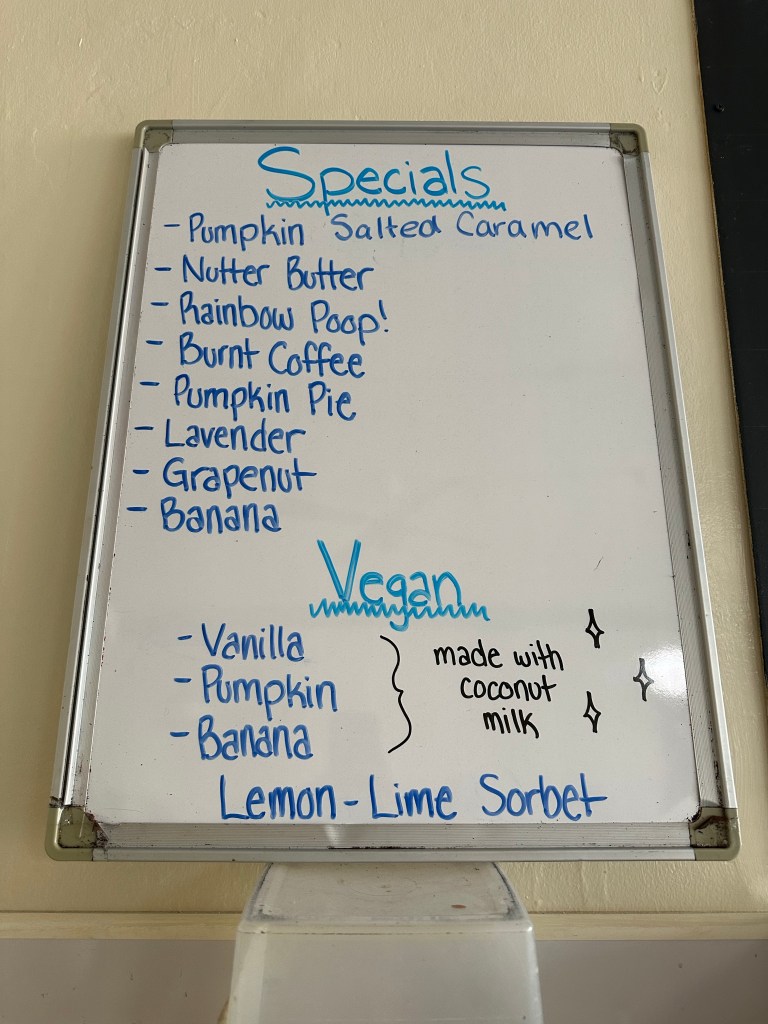 Specials
- Pumpkin Salted Caramel
- Nutter Butter
- Rainbow Poop!
- Burnt Coffee
- Pumpkin Pie
- Lavender
- Grapenut
- Banana
Vegan
- Vanilla
- Pumpkin
- Banana
made with
coconut
milk
Lemon-Lime Sorbet